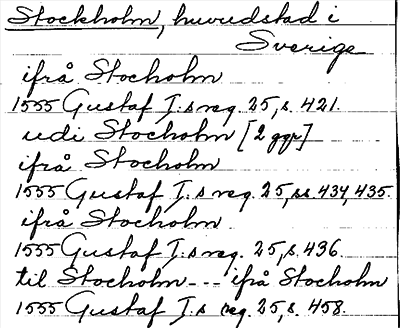 Stockholm, huvudstad i
Sverige
ifrå Stocholm
1555 Gustaf I:s reg. 25, s. 421.
udi Stocholm [2 ggr]
ifrå Stocholm
1555 Gustaf I:s reg. 25, ss. 434, 435.
ifrå Stocholm
1555 Gustaf I:s reg. 25, s. 436.
til Stocholm - - - ifrå Stocholm
1555 Gustaf I:s reg. 25, s. 458.